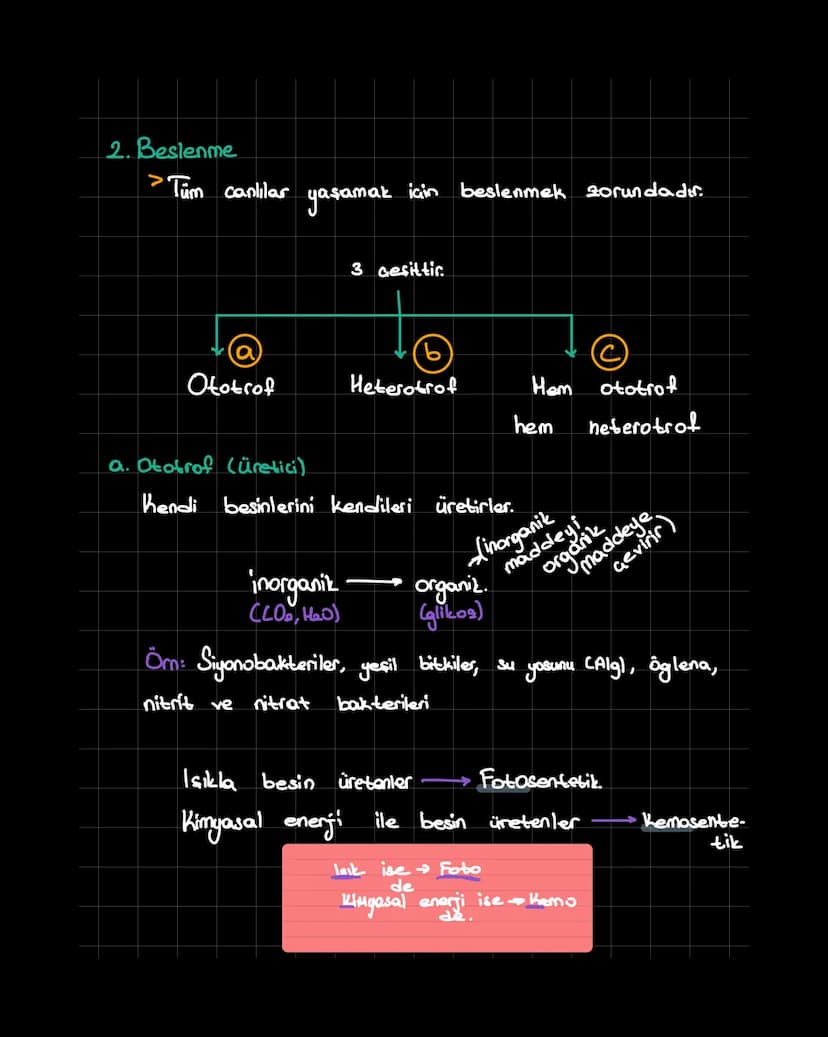 2. Beslenme
> Tüm canlılar yaşamak için beslenmek zorundadır.
3 çeşittir.
a b c
Ototrof Heterotrof Hem ototrof
hem heterotrof
a. Ototrof (üretici)
Kendi besinlerini kendileri üretirler.
(inorganik
maddeyi
organik
maddeye
çevirir)
inorganik → organik.
(CO₂, H₂O) (glikoz)
Örn: Siyonobakteriler, yeşil bitkiler, su yosunu (Alg), öglena,
nitrit ve nitrat bakterileri
Işıkla besin üretenler → Fotosentetik.
Kimyasal enerji ile besin üretenler → Kemosente-
tik
Işık ise → Foto
de
Kimyasal enerji ise → Kemo
de.